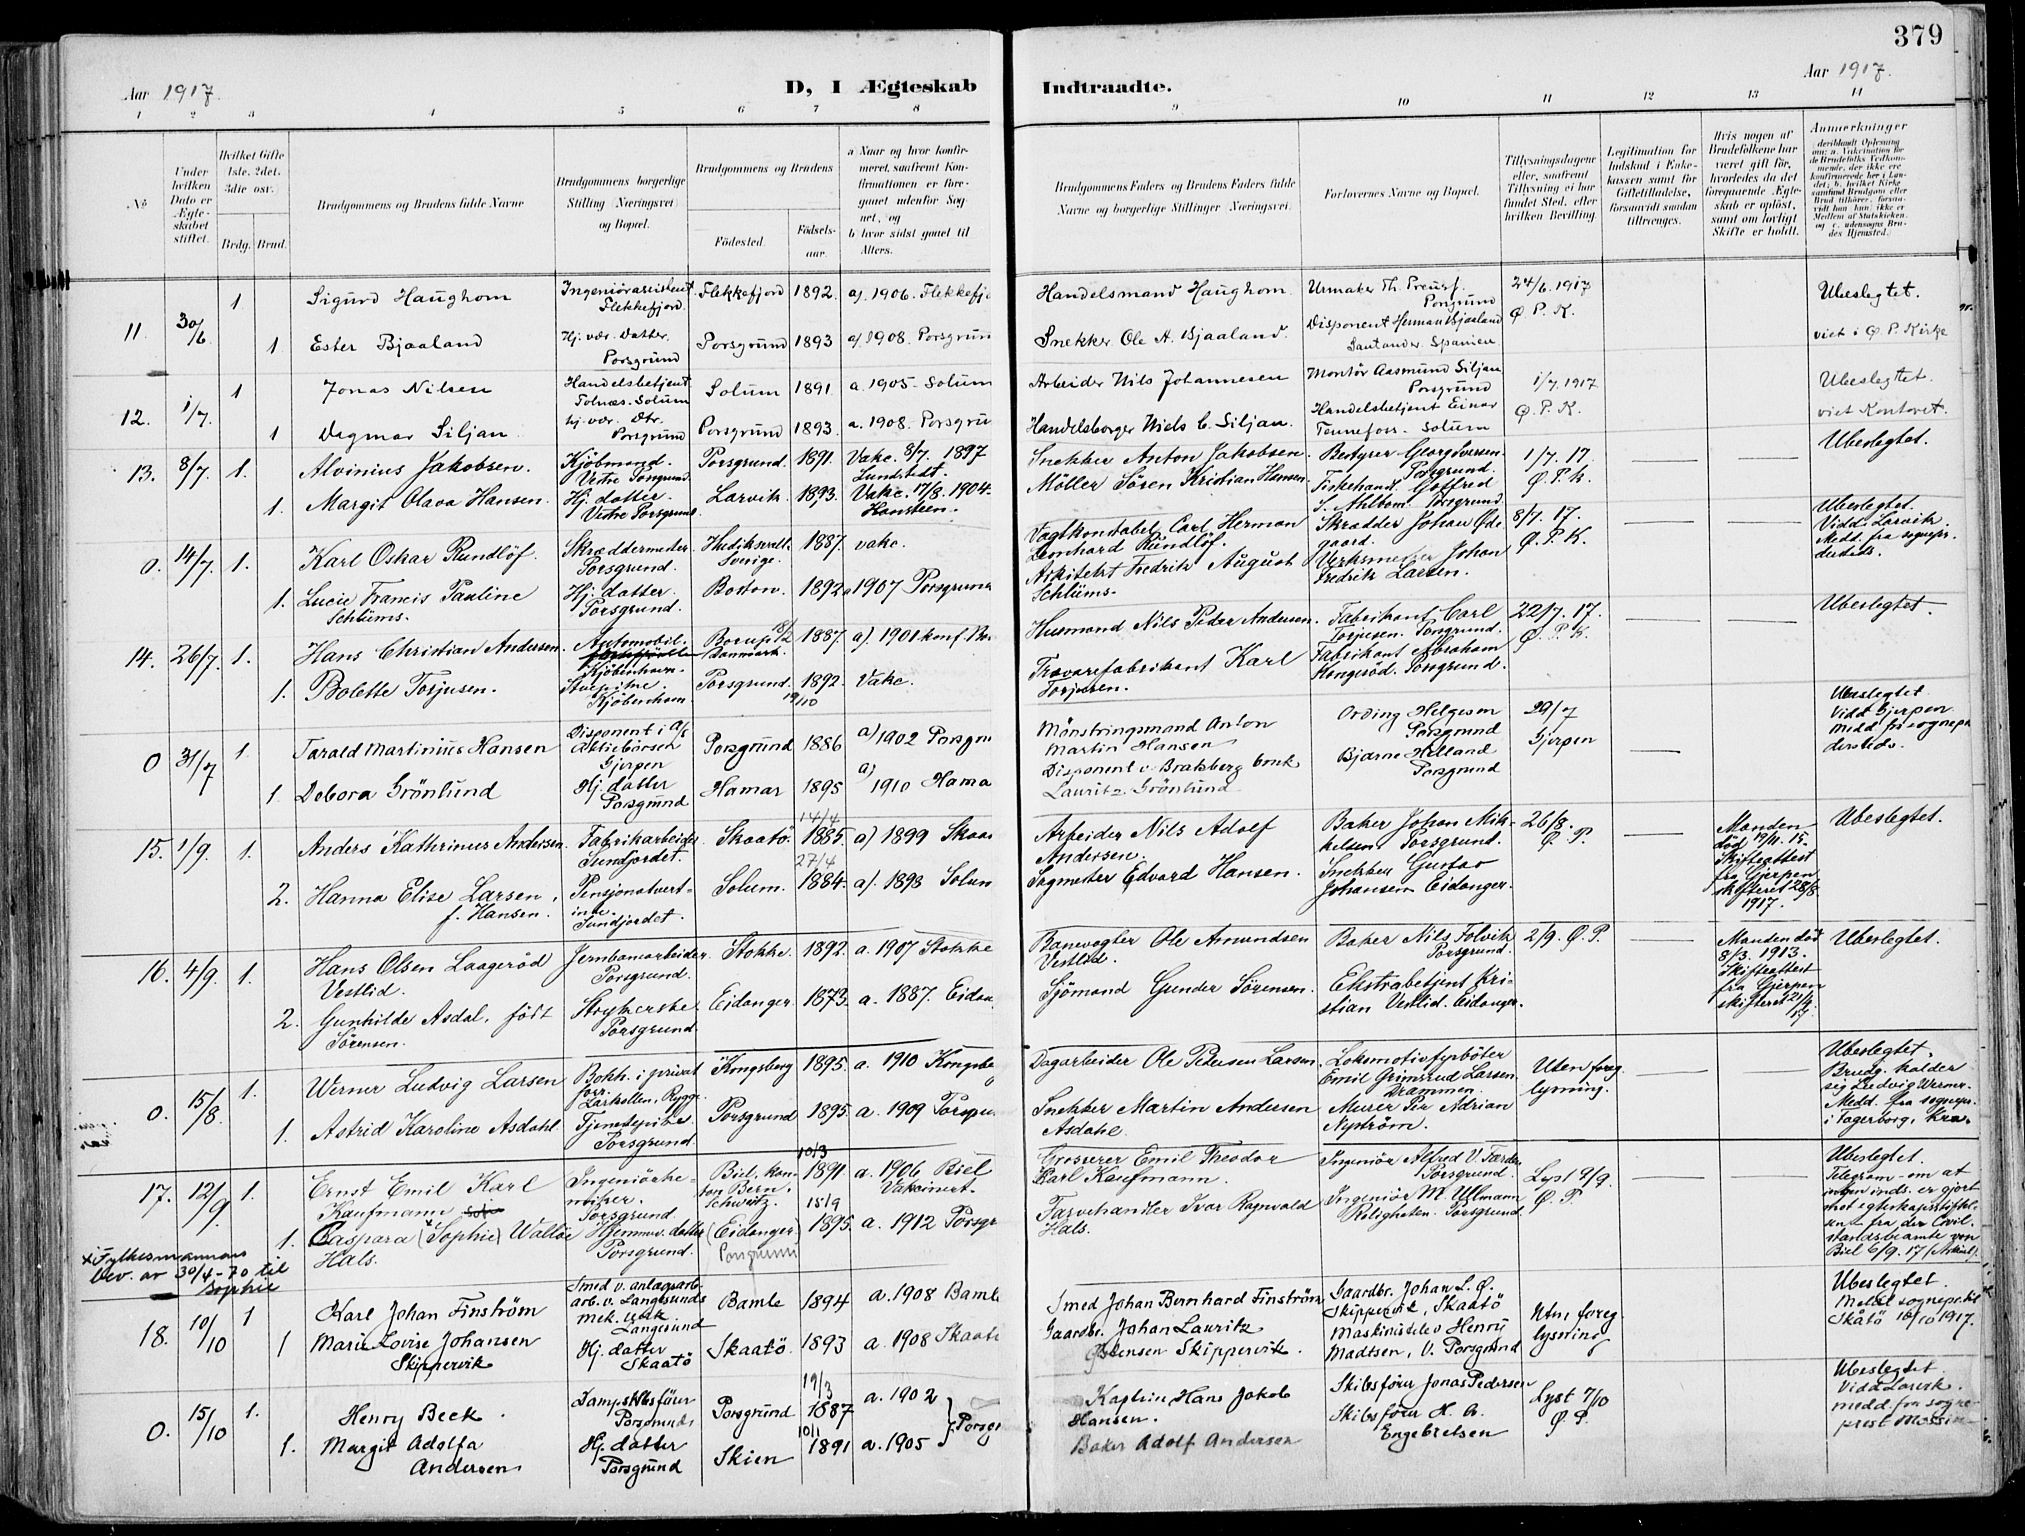 379
Aar 1917.
D, I Ægteskab Indtraadte.
Aar 1917.
1 2 3 4 5 6 7 8 9 10 11 12 13 14
No
Under hvilken Dato er Ægteskabet stiftet.
Hvilket Gifte 1ste. 2det. 3die osv.
Brdg. Brud.
Brudgommens og Brudens fulde Navne
Brudgommens borgerlige Stilling (Næringsvei) og Bopæl.
Brudgommens og Brudens
Fødested. Fødselsaar.
a Naar og hvor konfirmeret, saafremt Konfirmationen er foregaaet udenfor Sognet, og
b hvor sidst gaaet til Alters.
Brudgommens Faders og Brudens Faders fulde Navne og borgerlige Stillinger (Næringsvei).
Forlovernes Navne og Bopæl.
Tillysningsdagene eller, saafremt Tillysning ei har fundet Sted, efter hvilken Bevilling.
Legitimation for Indskud i Enkekassen samt for Giftetilladelse, forsaavidt saadan tiltrænges.
Hvis nogen af Brudefolkene har været gift før, hvorledes da det foregaaende Ægteskab er opløst, samt om lovligt Skifte er holdt.
Anmerkninger
11. 30/6 1 Sigurd Haughom Ingeniørassistent Flekkefjord. Flekkefjord 1892. a). 1906. Flekkefj
Handelsmand Haughom Urmaker Th. Preus. Porsgrund 24/6. 1917 Ø. P. K. Ubeslegtet.
1. Ester Bjaaland Hj. vær. Datter. Porsgrund Porsgrund 1893 a) 1908. Porsgrun
Snekker Ole A. Bjaaland. Disponent Herman Bjaaland Santander Spanien viet i Ø. P. Kirke
12. 1/7. 1 Jonas Nilsen Handelsbetjent Tolnæs. Solum Solum 1891 a. 1905 - Solum
Arbeider Nils Johannesen Montør Aasmund Siljan Porsgrund 1/7. 1917 Ø. P. K. Ubeslegtet.
1 Dagmar Siljan Hj. vær. Dtr. Porsgrund Porsgrund 1893. a. 1908. Porsgru
Handelsborger Niels C. Siljan. Handelsbetjent Einar Tennefoss. Solum viet Kontoret.
13. 8/7. 1. Alvinius Jakobsen. Kjøbmand. Vestre Porsgrund. Porsgrund. 1891. Vakc. 8/7. 1897 Lundstedt.
Snekker Anton Jakobsen. Bestyrer Georg Iversen Porsgrund. 1/7. 17. Ø. P. K. Ubeslegtet.
1. Margit Olava Hansen. Hj. datter. Vestre Porsgrund. Larvik. 1893. Vakc. 17/8. 1904. Hansteen.
Möller Sören Kristian Hansen. Fiskehandl. Gotfred S. Ahlbom. Porsgrund.
0. 14/7. 1. Karl Oskar Rundlöf. Skræddermester. Porsgrund. Hudiksvall. Sverige. 1887. vakc.
Vagtkonstabel Carl Herman Leonhard Rundlöf. Skrædder Johan Ødegaard. 8/7. 17. Ø. P. K. Ubeslegtet. Vidd. Larvik. Medd. fra sognepr. dersteds.
1. Lucie Francis Pauline Schlüms. Hj. datter. Porsgrund. Boston. 1892 a 1907 Porsgrund
Arkitekt Fredrik August Schlüms. Verksmester Johan Fredrik Larsen.
14. 26/7. 1. Hans Christian Andersen. Automobil- Kjöbenhavn. Borup Danmark. 18/2 1887. a). 1901. konf. Bor
Husmand Nils Peder Andersen. Fabrikant Carl Torjusen. Porsgrund. 22/7. 17. Ø. P. K. Ubeslegtet.
1. Bolette Torjusen. Stuepike. Kjöbenhavn. Porsgrund. 1892. 19/10 Vakc.
Trævarefabrikant Karl Torjusen. Fabrikant Abraham Kongeröd. Porsgrund.
0 31/7 1. Tarald Martinius Hansen Disponent i A/S Aktiebörsen Gjerpen Porsgrund 1886 a) 1902 Porsgru
Mönstringsmand Anton Martin Hansen Ording Helgesen Porsgrund 29/7 Gjerpen Ubeslegtet Vidd. Gjerpen Medd. fra sognepr. dersteds.
1. Debora Grönlund Hj. datter Porsgrund Hamar 1895 a) 1910 Hama
Disponent v. Bratsberg bruk Lauritz Grönlund Bjarne Helland Porsgrund
15. 1/9. 1. Anders Kathrinus Andersen. Fabrikarbeider. Sundjordet. Skaatö. 14/4 1885. a) 1899 Skaa
Arbeider Nils Adolf Andersen. Baker Johan Mikkelsen Porsgrund. 26/8. Ø. P. Manden död 19/11. 15. Skifteattest fra Gjerpen skifteret 28/8 1917. Ubeslegtet.
2. Hanna Elise Larsen, f. Hansen. Pensjonatvertinne. Sundjordet. Solum. 27/4 1884. a). 1898 Solum
Sagmester Edvard Hansen. Snekker Gustav Johansen Eidanger.
16. 4/9. 1. Hans Olsen Laageröd Vestlid. Jernbanearbeider. Porsgrund. Stokke. 1892. a. 1907 Stokke
Banevogter Ole Amundsen Vestlid. Baker Nils Folvik Porsgrund. 2/9. Ø. P. Manden död 8/3. 1913. Skifteattest fra Gjerpen skifteret 21/9. 17. Ubeslegtet.
2. Gunhilde Asdal, födt Sörensen. Strykerske Porsgrund Eidanger. 1873. a. 1887. Eidan
Sjömand Gunder Sörensen. Ekstrabetjent Kristian Vestlid. Eidanger.
0. 15/8. 1. Werner Ludvig Larsen Bokh. i privat forr. Larkollen, Rygge. Kongsberg 1895. a. 1910 Kongsbe
Dagarbeider Ole Petersen Larsen. Lokomotivfyrböter Emil Grimsrud Larsen. Drammen. Uten foreg. lysning. Ubeslegtet. Brudg. kalder sig Ludvig Werner. Medd. fra sognepr. i Fagerborg, Kra.
1. Astrid Karoline Asdahl. Tjenestepike Porsgrund Porsgrund 1895 a. 1909 Porsgru
Snekker Martin Andersen Asdahl. Murer Per Adrian Nyström.
17. 12/9. 1. Ernst Emil Karl Kaufmann. Ingeniörkemiker. Porsgrund Biel, kanton Bern. Schweitz. 10/3 1891 a. 1906 Biel Vakcinert.
Grosserer Emil Theodor Karl Kaufmann. Ingeniör Alfred V. Porsgrund. Lyst 9/9. Ø. P. Ubeslegtet. Telegram om at ingen inds. er gjort mot egteskapsstiftelsen fra den Civilstandsbeamte von Biel 6/9. 17 (Arkivet).
1. Caspara (x Sophie) Waltöe Hals. Hjemmev. datter Porsgrund. (Eidanger. Porsgrund 15/9 1895. a. 1912 Porsgr
Farvehandler Ivar Ragnvald Hals. Ingeniör M. Ullmann Roligheten. Porsgrund.
x Fylkesmannens bev. av 30/4-70 til Sophie
18. 10/10 1 Karl Johan Finström Smed v. anlægsarb. v. Langesunds mek. verk Langesund Bamle 1894 a. 1908 Bamle
Smed Johan Bernhard Finström Gaardbr. Johan L. Ø. Skippervik, Skaatö Uten foreg. lysning Ubeslegtet. Medd. sognepr. til Skåtö 16/10 1917.
1 Marie Lovise Johansen Skippervik Hj. datter Skaatö Skaatö. 1893 a. 1908 Skaatö
Gaardbr. Johan Lauritz Östensen Skippervik. Maskinistelev Henry Madtsen, V. Porsgrund
0. 15/10 1. Henry Beck. Dampskibsförer Porsgrund Porsgrund 19/3 1887 a. 1902 } Porsgr
Kaptein Hans Jakob Hansen. Skibsförer Jonas Pedersen Lyst 7/10 Ø. P. Ubeslegtet. Vidd. medd. fra sogneprest
1. Margit Adolfa Andersen Hj. datter Porsgrund Skien 10/1 1891 a. 1905
Baker Adolf Andersen Skibsförer H. A. Engebretsen